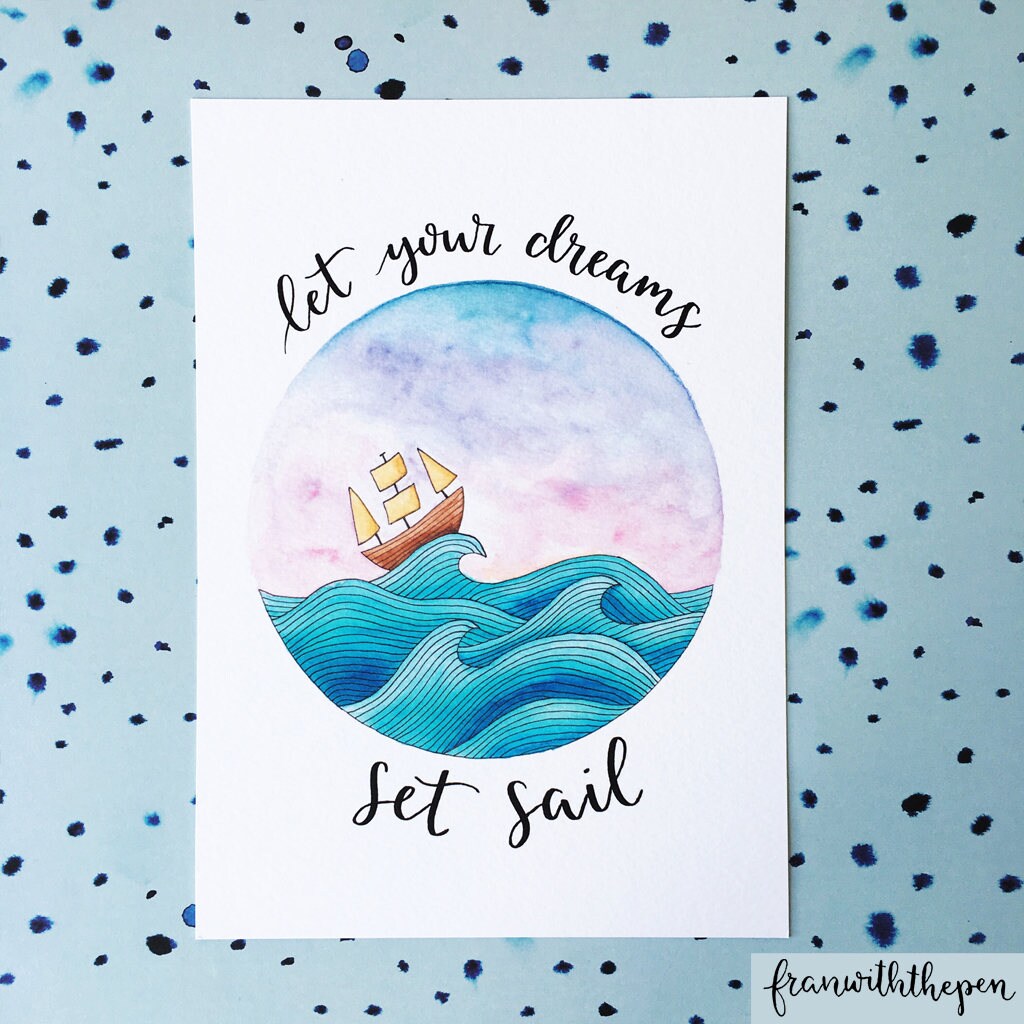 let your dreams
set sail
franwiththepen